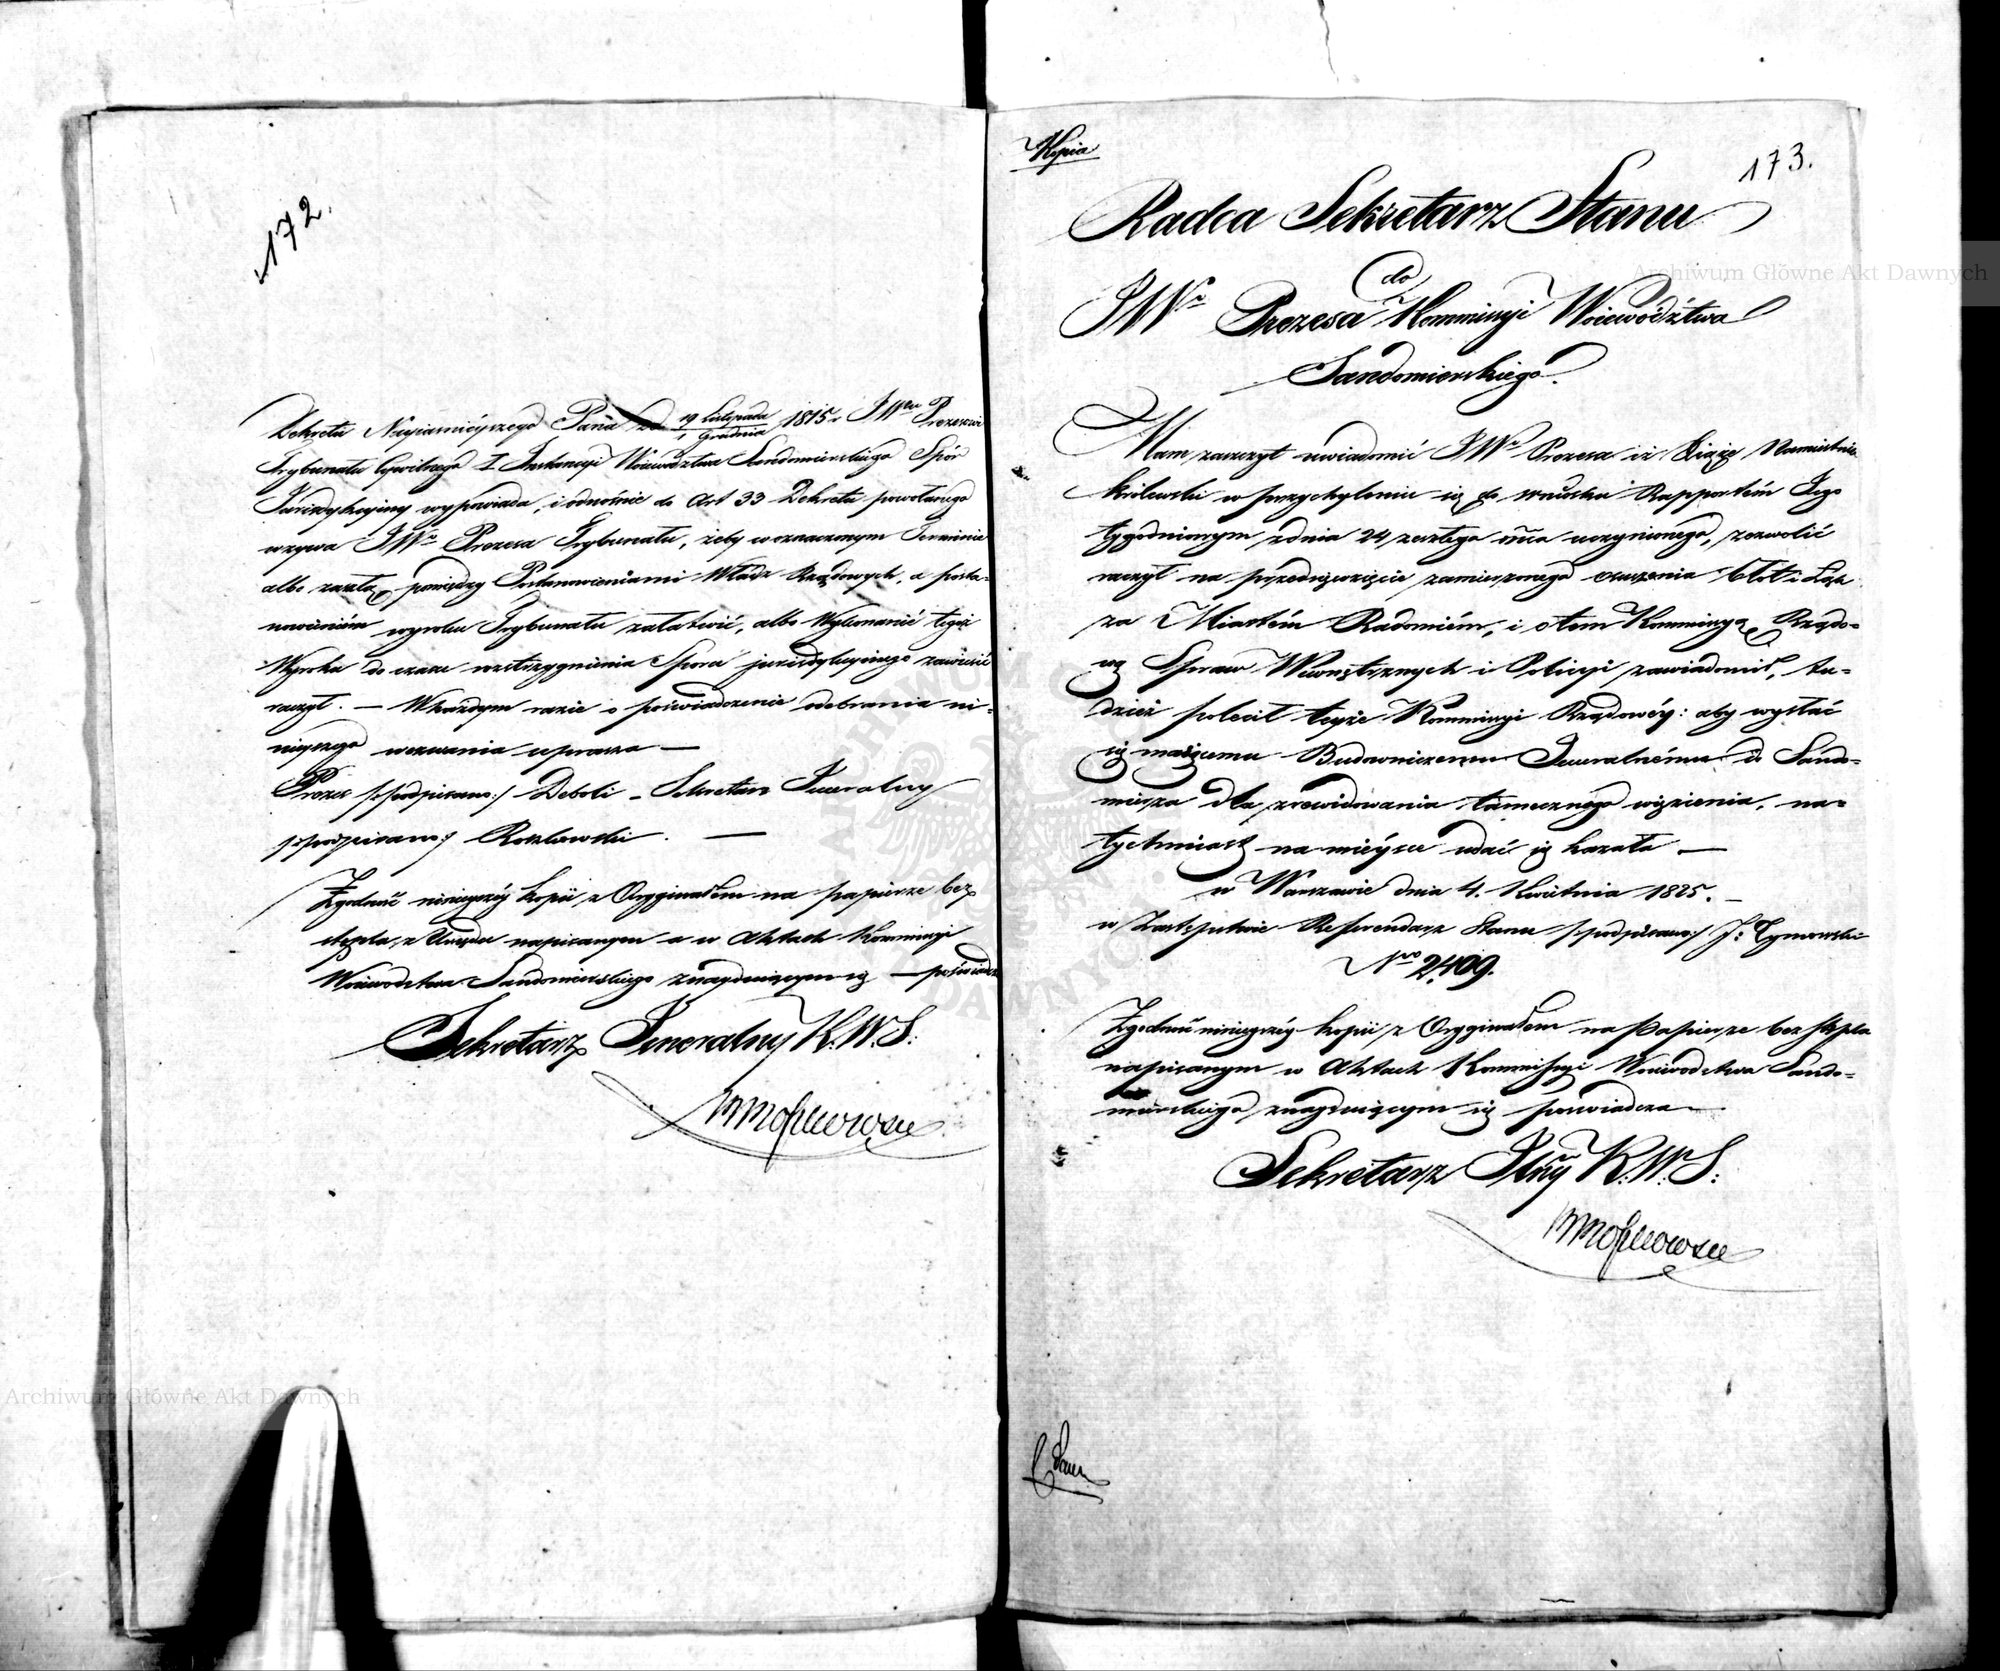 172.
Dekretu Nayjaśnieyszego Pana z d 19 Listopada / 1 Grudnia 1815 r JWmu Prezesowi
Trybunału Cywilnego I Instancyi Województwa Sandomierskiego Spór
Jurisdykcyiny wypowiada, i odnośnie do Art 33 Dekretu powołanego
wzywa JWo Prezesa Trybunału, żeby w oznaczonym Terminie
albo zaszłą pomiędzy Postanowieniami Władz Rządowych, a posta-
nowieniem wyroku Trybunału załatwić, albo Wykonanie tegoż
Wyroku do czasu rozstrzygnienia Sporu jurisdykcyinego zawiesić
raczył. — W każdym razie o poświadczenie odebrania ni-
nieyszego wezwania uprasza —
Prezes /:podpisano:/ Deboli – Sekretarz Jeneralny
/:podpisano:/ Rozłowski. —
Zgodność ninieyszéy kopii z Oryginałem na papierze bez
stępla, z Urzędu napisanym a w Aktach Kommissyi
Woiewodztwa Sandomierskiego znayduiącym się — poświadcza
Sekretarz Jeneralny K.W.S.
Kopia
173.
Radca Sekretarz Stanu
do
JWo Prezesa Kommissyi Woiewództwa
Sandomierskiego.
Mam zaszczyt uwiadomić JWo Prezesa iż Xiąże Namiestnik
Królewski w przychyleniu się do wniosku Rapportém Jego
tygodniowym z dnia 24 zeszłego m̃ca uczynionego, zezwolić
raczył na przedsięwzięcie zamierzonego osuszenia błot i Łąk
za Miastém Radomiém, i o tem Kommissyą Rządo-
wą Spraw Wewnętrznych i Policyi zawiadomił, tu-
dzież polecił teyże Kommissyi Rządowéy: aby wysłać
się maiącemu Budowniczemu Jeneralnému do Sando-
mierza dla zrewidowania tamecznego więzienia, na-
tychmiast na mieysce udać się kazała —
w Warszawie dnia 4. Kwietnia 1825. –
w Zastępstwie Referendarz Stanu /:podpisano:/ J: Tymowski
Nro 2,409.
Zgodność ninieyszéy kopii z Oryginałem na Papierze bez stępla
napisanym w Aktach Kommissyi Woiewodztwa Sando-
mierskiego znayduiącym się poświadcza —
Sekretarz Jlny K.W.S.
Archiwum Główne Akt Dawnych
Archiwum Główne Akt Dawnych
ARCHIWUM GŁÓWNE AKT DAWNYCH